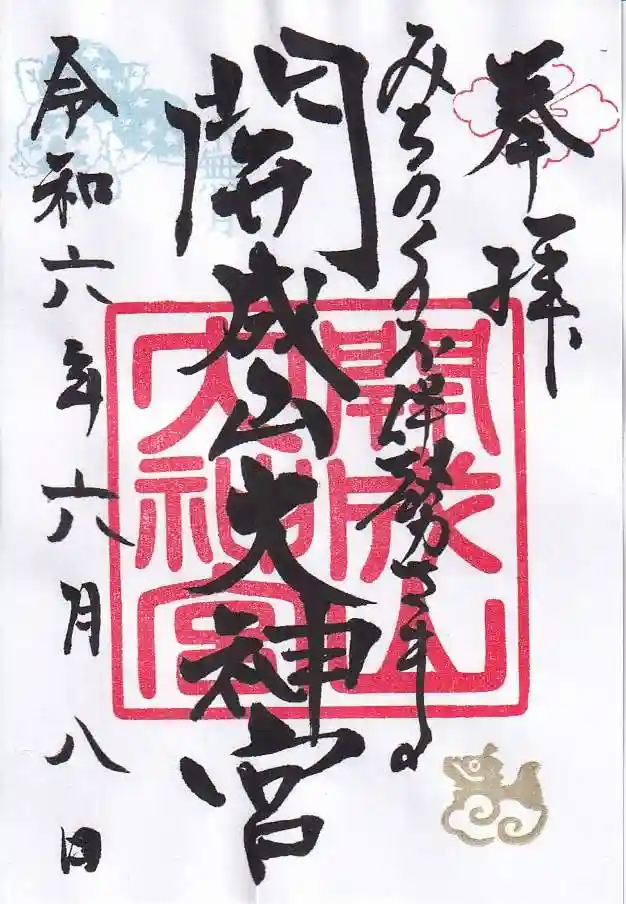 奉拝
みちのくのお伊勢さま
開成山大神宮
令和六年六月八日
開成山
大神宮